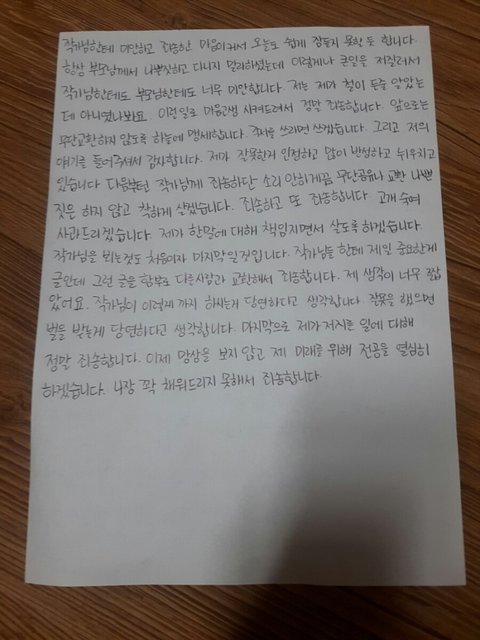 작가님한테 미안하고 죄송한 마음이 커서 오늘도 쉽게 잠들지 못할 듯 합니다.
항상 부모님께서 나쁜짓하고 다니지 말라하셨는데 이렇게나 큰일을 저질러서
작가님한테도 부모님한테도 너무 미안합니다. 저는 제가 철이 든줄 알았는
데 아니였나봐요 이런일로 마음고생 시켜드려서 정말 죄송합니다. 앞으로는
무단교환하지 않도록 하늘에 맹세합니다. 각서를 쓰라면 쓰겠습니다. 그리고 저의
얘기를 들어주셔서 감사합니다. 제가 잘못한거 인정하고 많이 반성하고 뉘우치고
있습니다 다음부턴 작가님께 죄송하단 소리 안하게끔 무단공유나 교환 나쁜
짓은 하지 않고 착하게 살겠습니다. 죄송하고 또 죄송합니다 고개 숙여
사과드리겠습니다. 제가 한말에 대해 책임지면서 살도록하겠습니다.
작가님을 뵙는것도 처음이자 마지막일것입니다. 작가님들 한테 제일 중요한게
글인데 그런 글을 함부로 다른사람과 교환해서 죄송합니다. 제 생각이 너무 짧
았어요. 작가님이 이렇게 까지 하시는게 당연하다고 생각합니다 잘못을 했으면
벌을 받는게 당연하다고 생각합니다. 마지막으로 제가 저지른 일에 대해
정말 죄송합니다. 이제 망상을 보지 않고 제 미래를 위해 전공을 열심히
하겠습니다. 나장 꽉 채워드리지 못해서 죄송합니다.